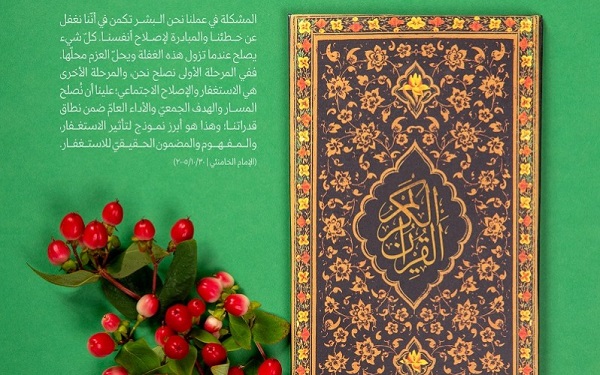 المشكلة في عملنا نحن البشر تكمن في أنّنا نغفل
عن خطئنا والمبادرة لإصلاح أنفسنا. كلّ شيء
يصلح عندما تزول هذه الغفلة ويحلّ العزم محلّها.
ففي المرحلة الأولى نصلح نحن، والمرحلة الأخرى
هي الاستغفار والإصلاح الاجتماعي؛ علينا أن نُصلح
المسار والهدف الجمعيّ والأداء العامّ ضمن نطاق
قدراتنا؛ وهذا هو أبرز نموذج لتأثير الاستغفار،
والمفهوم والمضمون الحقيقيّ للاستغفار.
(الإمام الخامنئي | ٢٠٠٥/١٠/٣٠)
القرآن الكريم